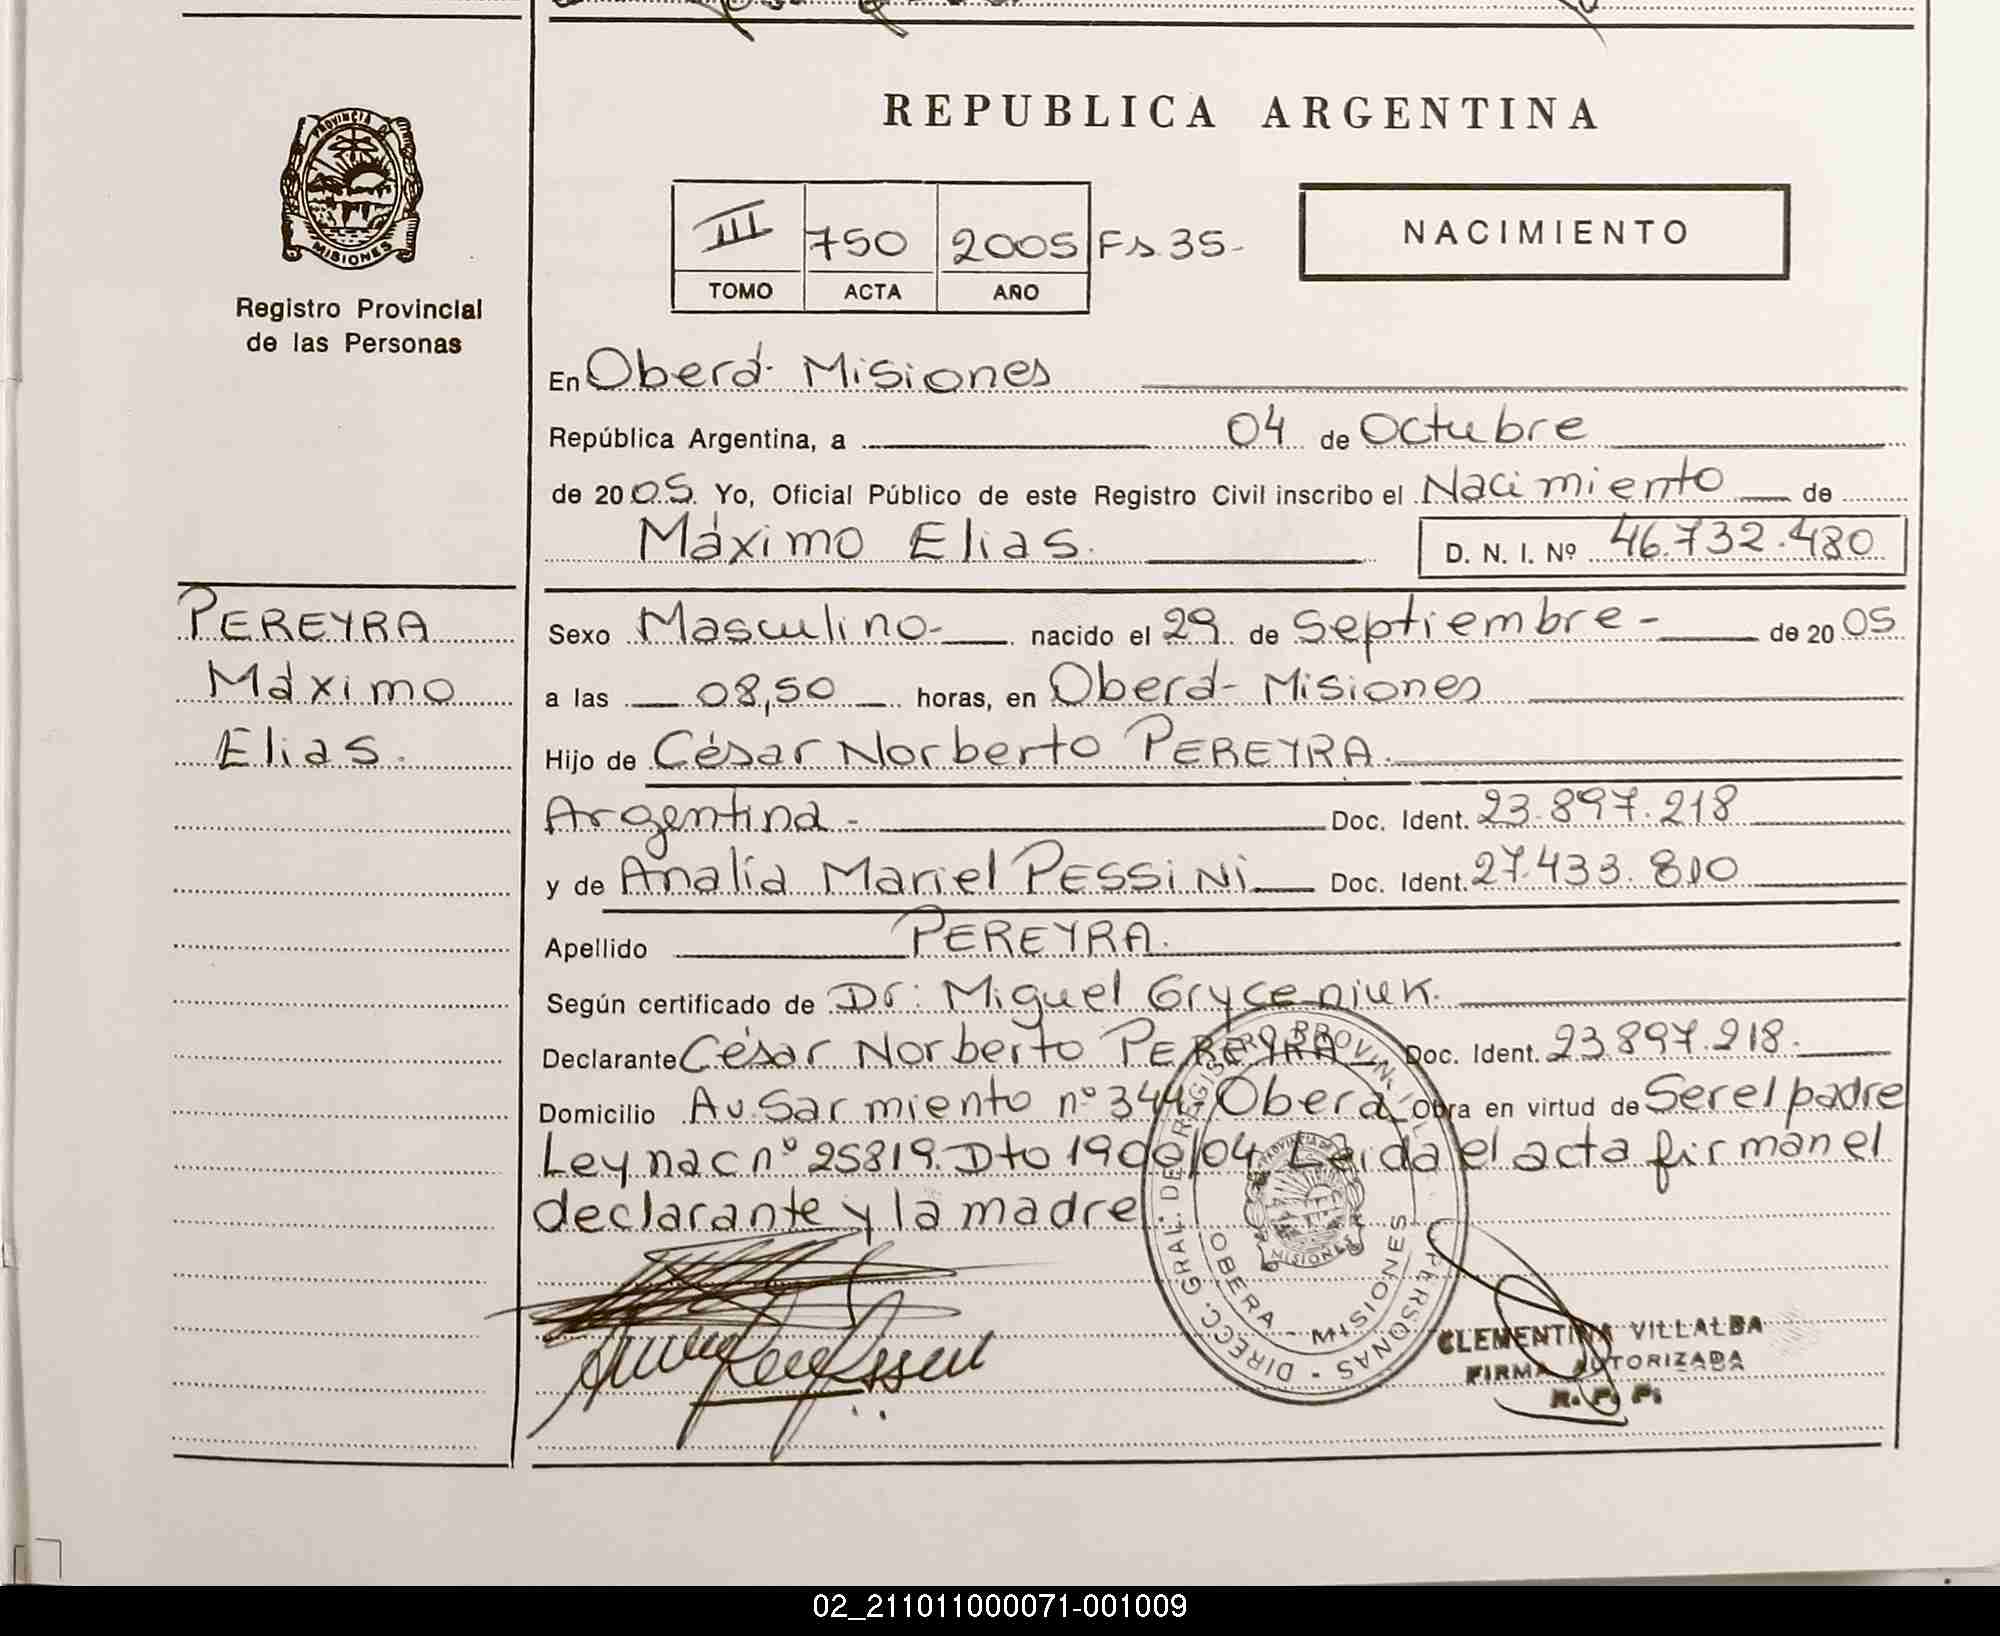 REPUBLICA ARGENTINA
PROVINCIA DE
MISIONES
Registro Provincial
de las Personas
III 750 2005 Fs. 35-
TOMO ACTA AÑO
NACIMIENTO
En Oberá- Misiones
República Argentina, a 04 de Octubre
de 2005. Yo, Oficial Público de este Registro Civil inscribo el Nacimiento de
Máximo Elias. D. N. I. Nº 46.732.480
PEREYRA
Máximo
Elias.
Sexo Masculino- nacido el 29 de Septiembre - de 2005
a las 08,50 horas, en Oberá- Misiones
Hijo de César Norberto PEREYRA.
Argentina - Doc. Ident. 23.897.218
y de Analía Mariel PESSINI Doc. Ident. 27.433.810
Apellido PEREYRA.
Según certificado de Dr: Miguel Gryceniuk.
Declarante César Norberto PEREYRA Doc. Ident. 23.897.218.
Domicilio Av. Sarmiento nº 344, Oberá Obra en virtud de Ser el padre
Ley nac nº 25819. Dto 1900/04 Leida el acta firman el
declarante y la madre.
DIRECC. GRAL. DE REGISTRO PROVIN. PERSONAS
OBERA - MISIONES
PROVINCIA DE
MISIONES
CLEMENTINA VILLALBA
FIRMA AUTORIZADA
R. P. P.
02_211011000071-001009